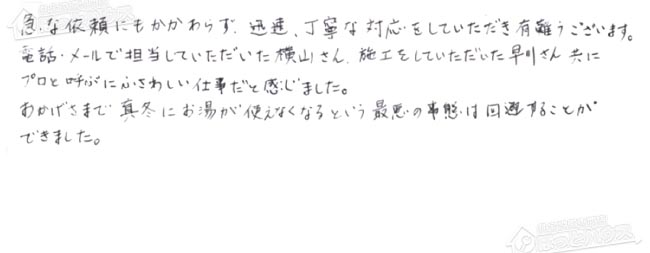 急な依頼にもかかわらず、迅速、丁寧な対応をしていただき有難うございます。
電話・メールで担当していただいた横山さん、施工をしていただいた早川さん共に
プロと呼ぶにふさわしい仕事だと感じました。
おかげさまで真冬にお湯が使えなくなるという最悪の事態は回避することが
できました。